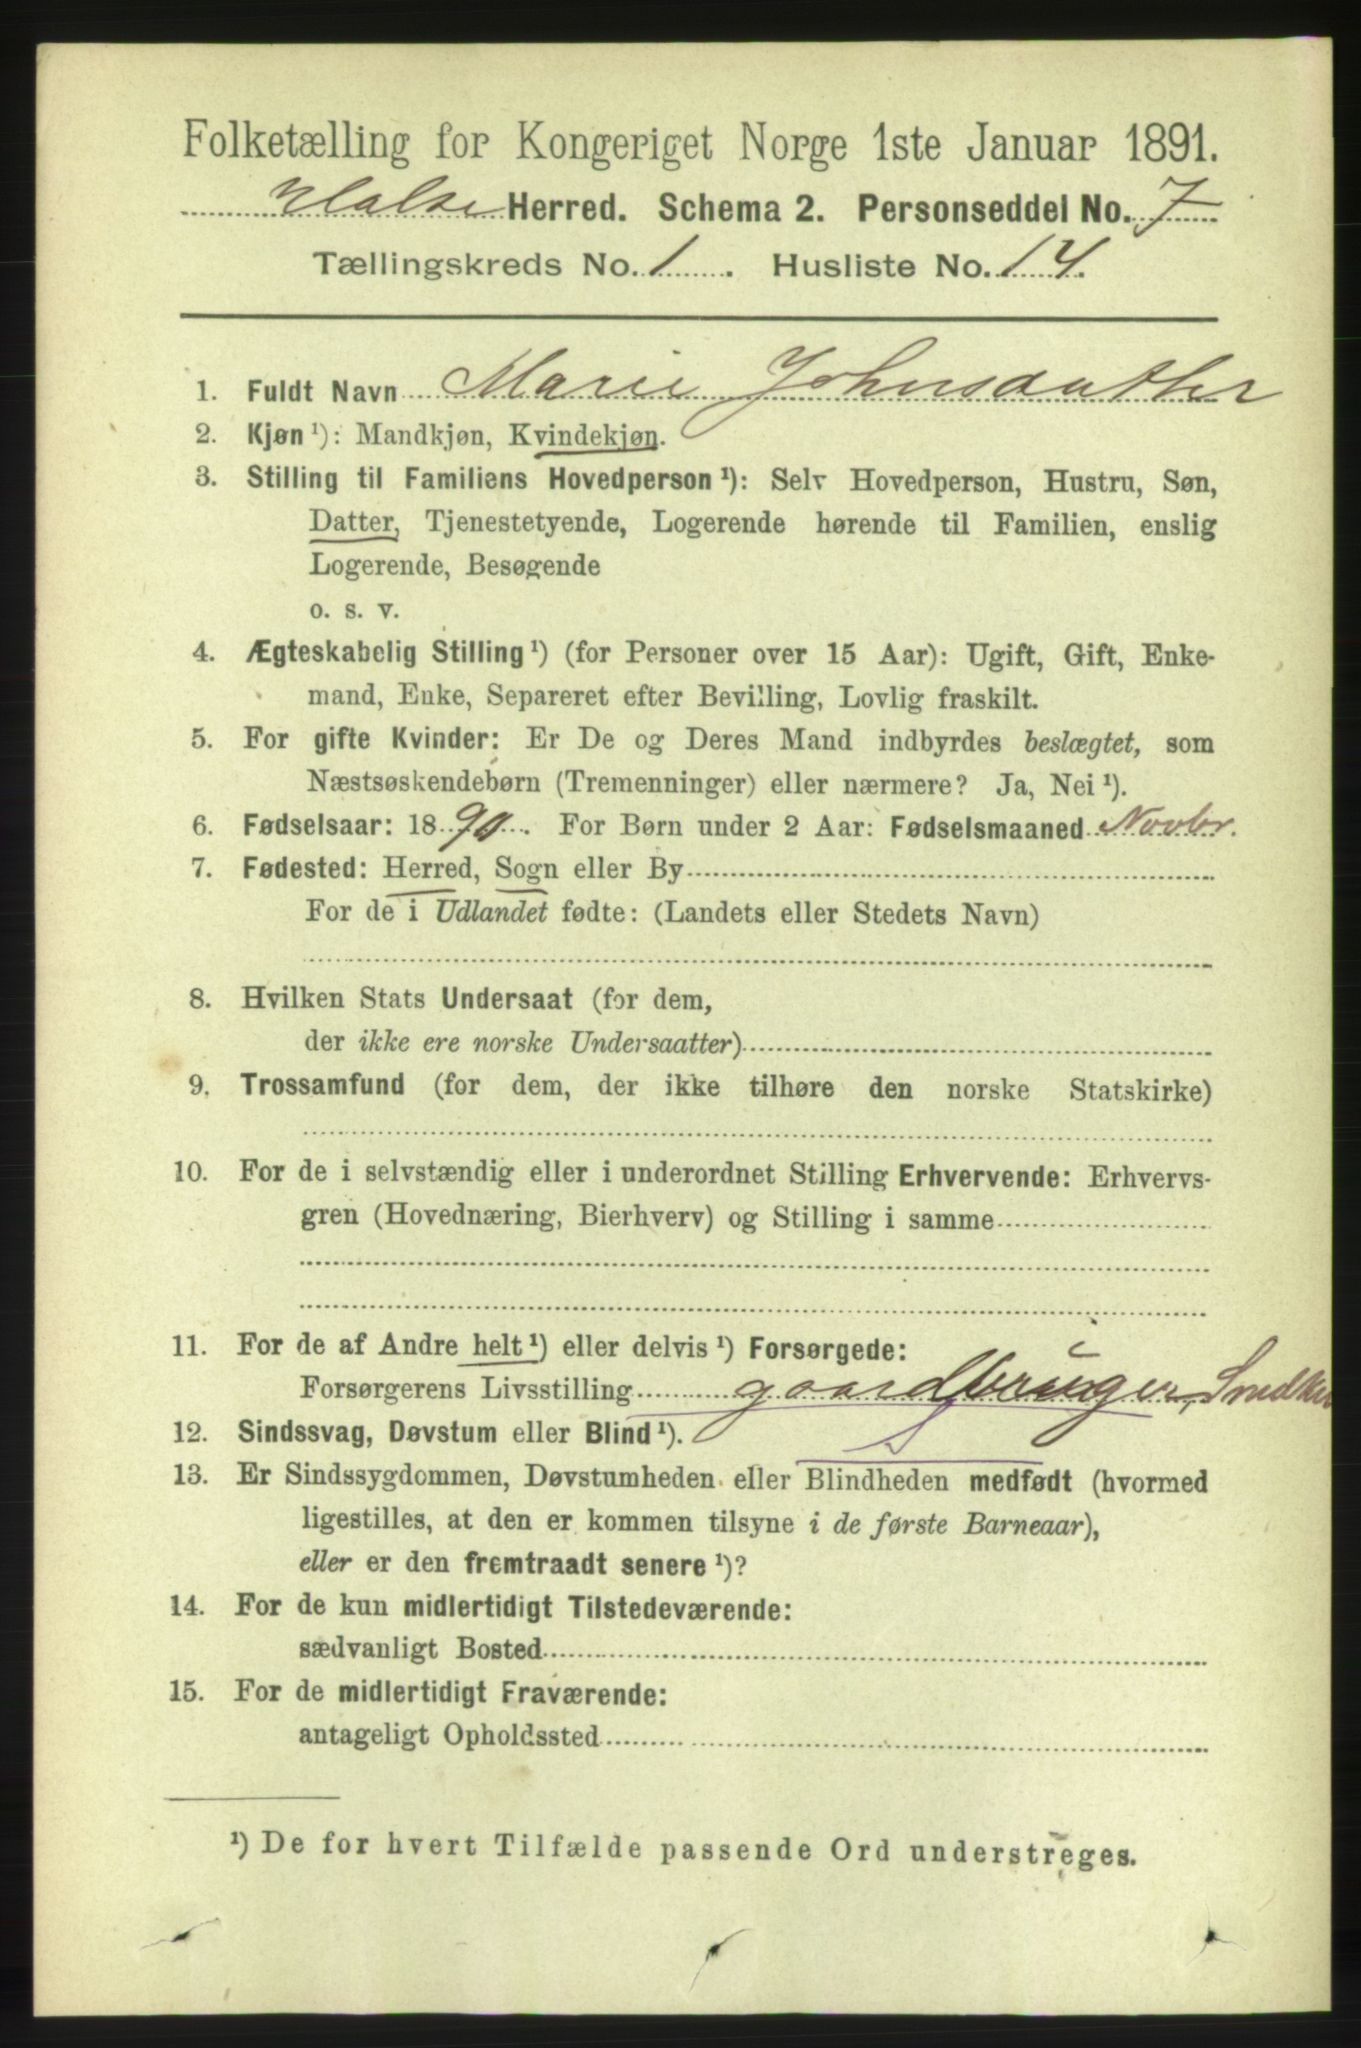 Folketælling for Kongeriget Norge 1ste Januar 1891.
Halse Herred. Schema 2. Personseddel No. 7
Tællingskreds No. 1. Husliste No. 14.
1. Fuldt Navn Marie Johnsdatter
2. Kjøn ¹): Mandkjøn, Kvindekjøn.
3. Stilling til Familiens Hovedperson ¹): Selv Hovedperson, Hustru, Søn,
Datter, Tjenestetyende, Logerende hørende til Familien, enslig
Logerende, Besøgende
o. s. v.
4. Ægteskabelig Stilling ¹) (for Personer over 15 Aar): Ugift, Gift, Enke-
mand, Enke, Separeret efter Bevilling, Lovlig fraskilt.
5. For gifte Kvinder: Er De og Deres Mand indbyrdes beslægtet, som
Næstsøskendebørn (Tremenninger) eller nærmere? Ja, Nei ¹).
6. Fødselsaar: 1890. For Børn under 2 Aar: Fødselsmaaned Novbr.
7. Fødested: Herred, Sogn eller By
For de i Udlandet fødte: (Landets eller Stedets Navn)
8. Hvilken Stats Undersaat (for dem,
der ikke ere norske Undersaatter)
9. Trossamfund (for dem, der ikke tilhøre den norske Statskirke)
10. For de i selvstændig eller i underordnet Stilling Erhvervende: Erhvervs-
gren (Hovednæring, Bierhverv) og Stilling i samme
11. For de af Andre helt ¹) eller delvis ¹) Forsørgede:
Forsørgerens Livsstilling gaardbruger, Snedker
12. Sindssvag, Døvstum eller Blind ¹).
13. Er Sindssygdommen, Døvstumheden eller Blindheden medfødt (hvormed
ligestilles, at den er kommen tilsyne i de første Barneaar),
eller er den fremtraadt senere ¹)?
14. For de kun midlertidigt Tilstedeværende:
sædvanligt Bosted
15. For de midlertidigt Fraværende:
antageligt Opholdssted
¹) De for hvert Tilfælde passende Ord understreges.